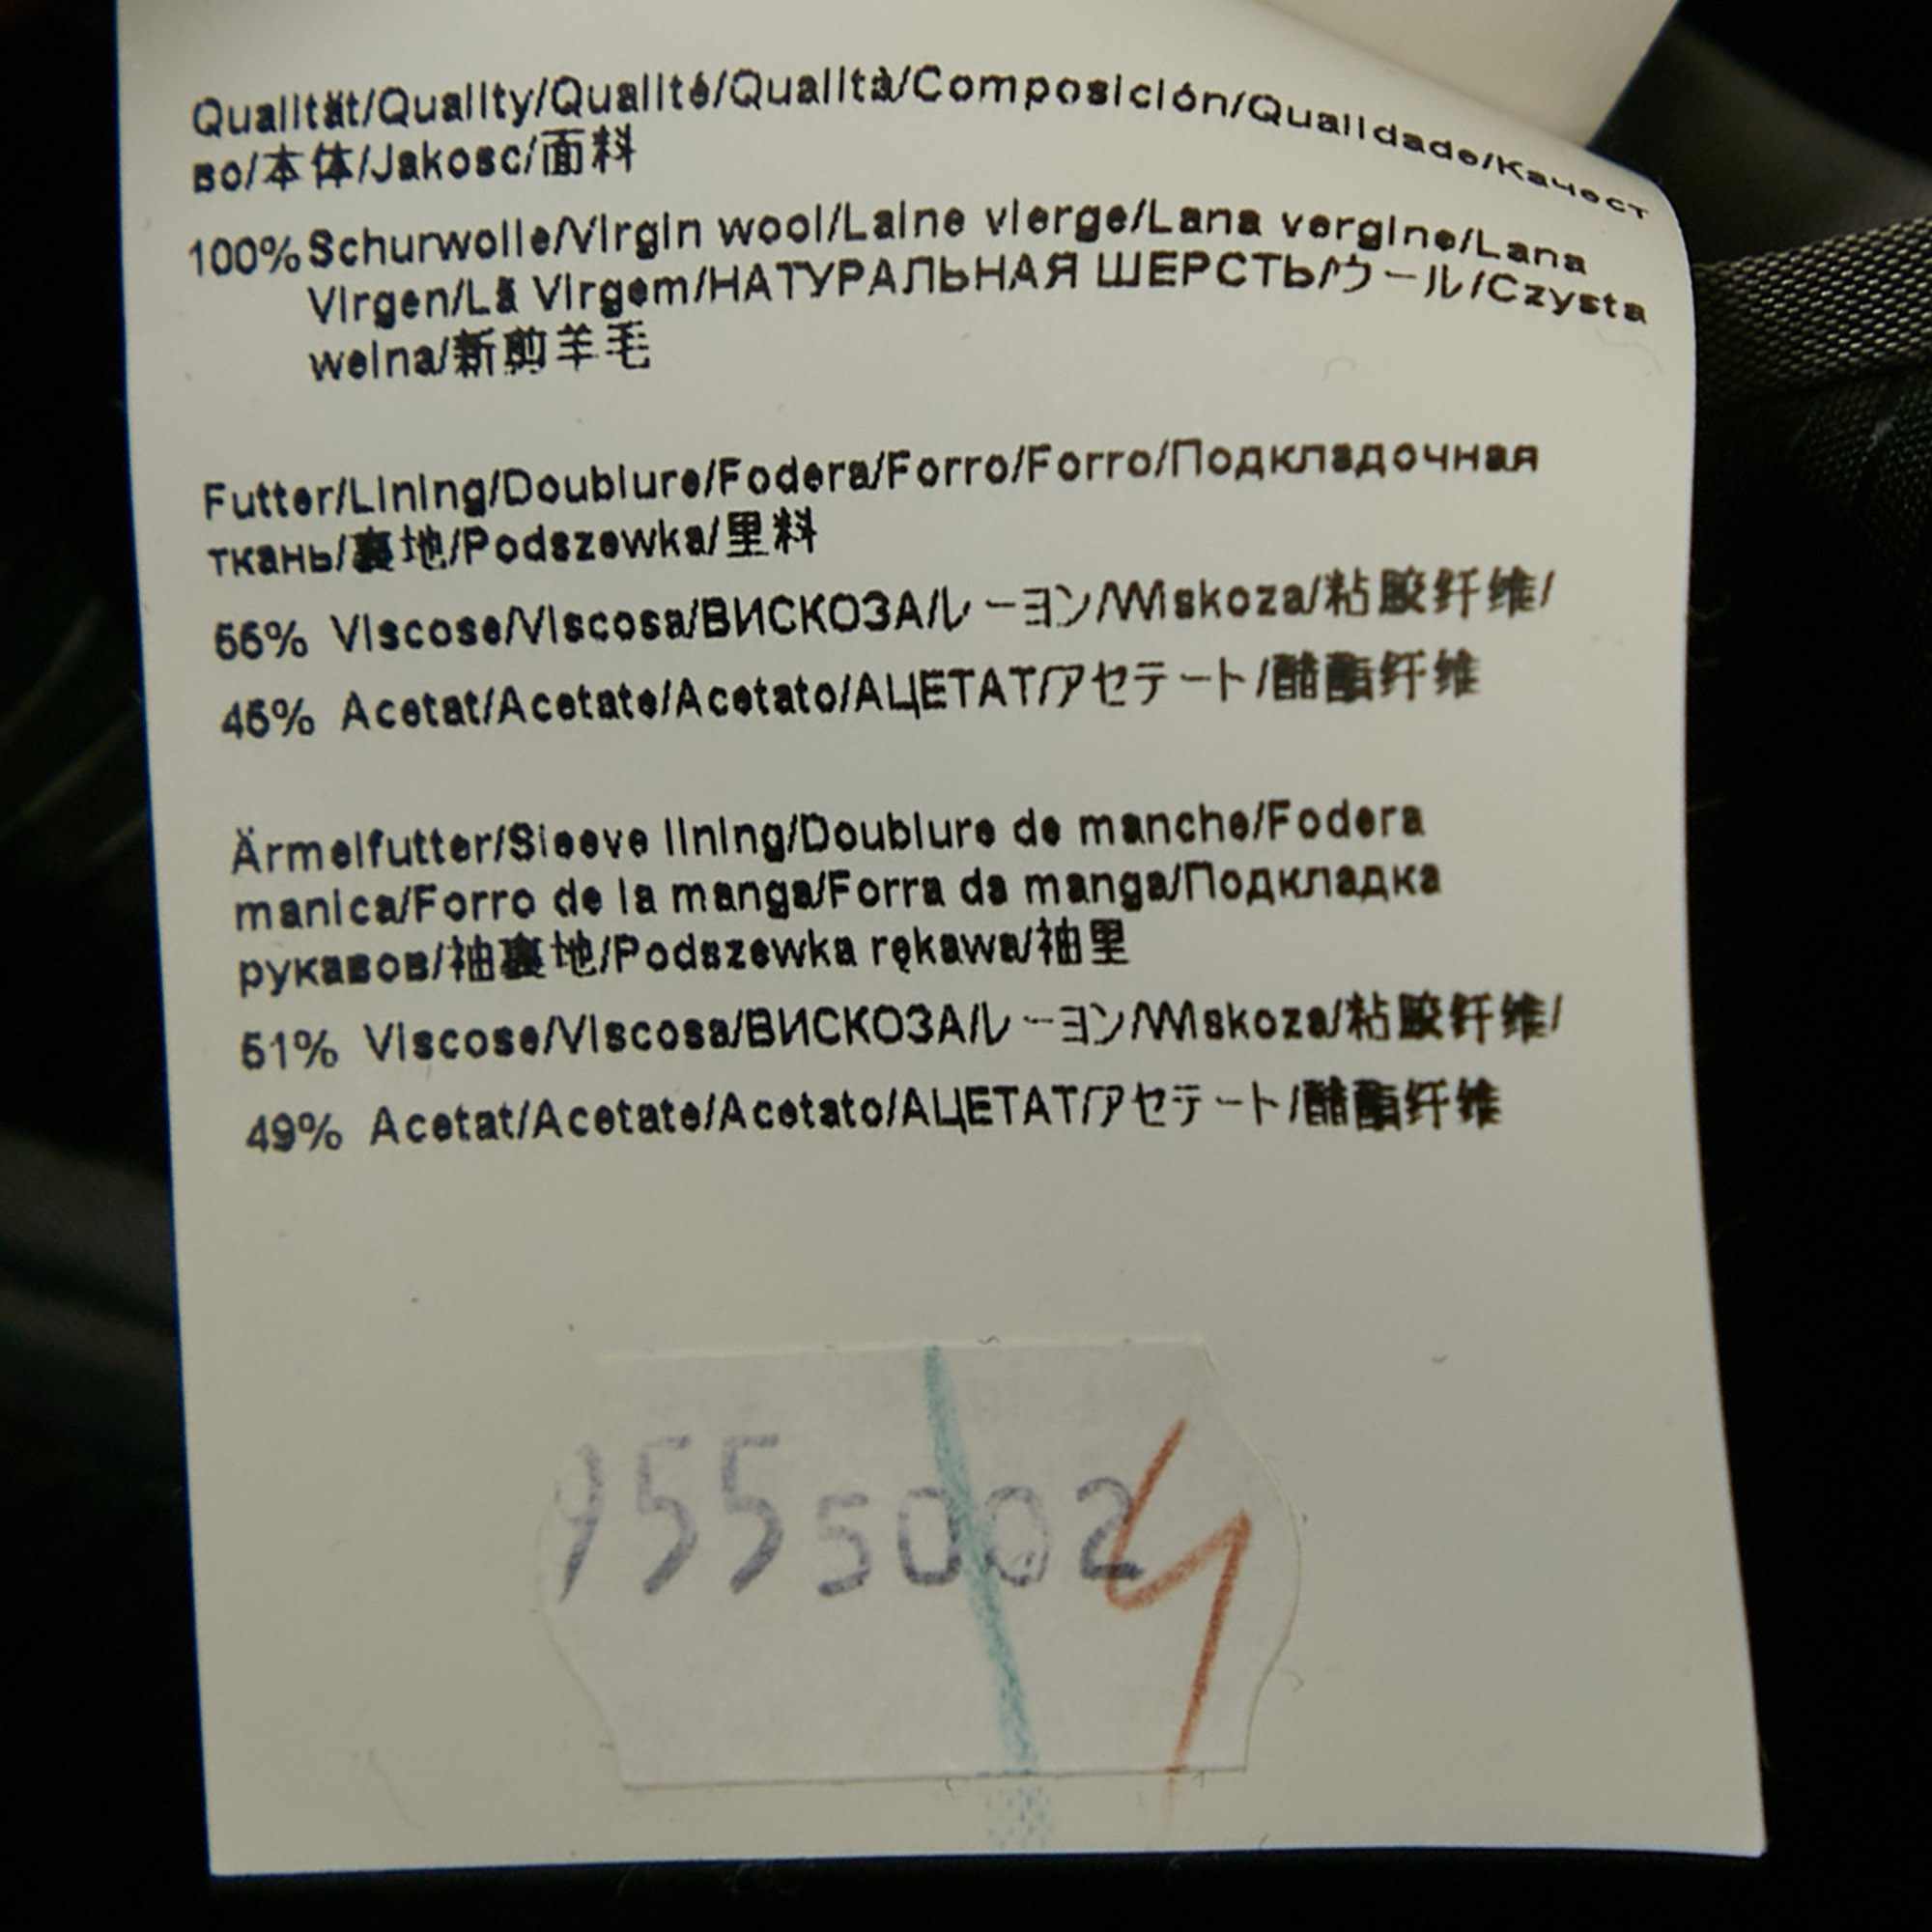 Qualität/Quality/Qualité/Qualità/Composición/Qualidade/Качест
во/本体/Jakosc/面料
100% Schurwolle/Virgin wool/Laine vierge/Lana vergine/Lana
Virgen/Lã Virgem/НАТУРАЛЬНАЯ ШЕРСТЬ/ウール/Czysta
welna/新剪羊毛
Futter/Lining/Doublure/Fodera/Forro/Forro/Подкладочная
ткань/裏地/Podszewka/里料
55% Viscose/Viscosa/ВИСКОЗА/レーヨン/Wiskoza/粘胶纤维/
45% Acetat/Acetate/Acetato/АЦЕТАТ/アセテート/醋酯纤维
Ärmelfutter/Sleeve lining/Doublure de manche/Fodera
manica/Forro de la manga/Forra da manga/Подкладка
рукавов/袖裏地/Podszewka rękawa/袖里
51% Viscose/Viscosa/ВИСКОЗА/レーヨン/Wiskoza/粘胶纤维/
49% Acetat/Acetate/Acetato/АЦЕТАТ/アセテート/醋酯纤维
9555002 4